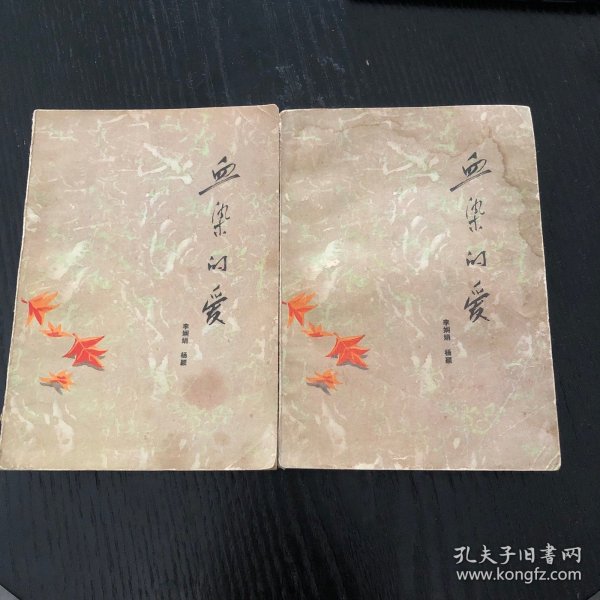 血染的爱
李娴娟 杨颖
血染的爱
李娴娟 杨颖
孔夫子旧書网
www.kongfz.com